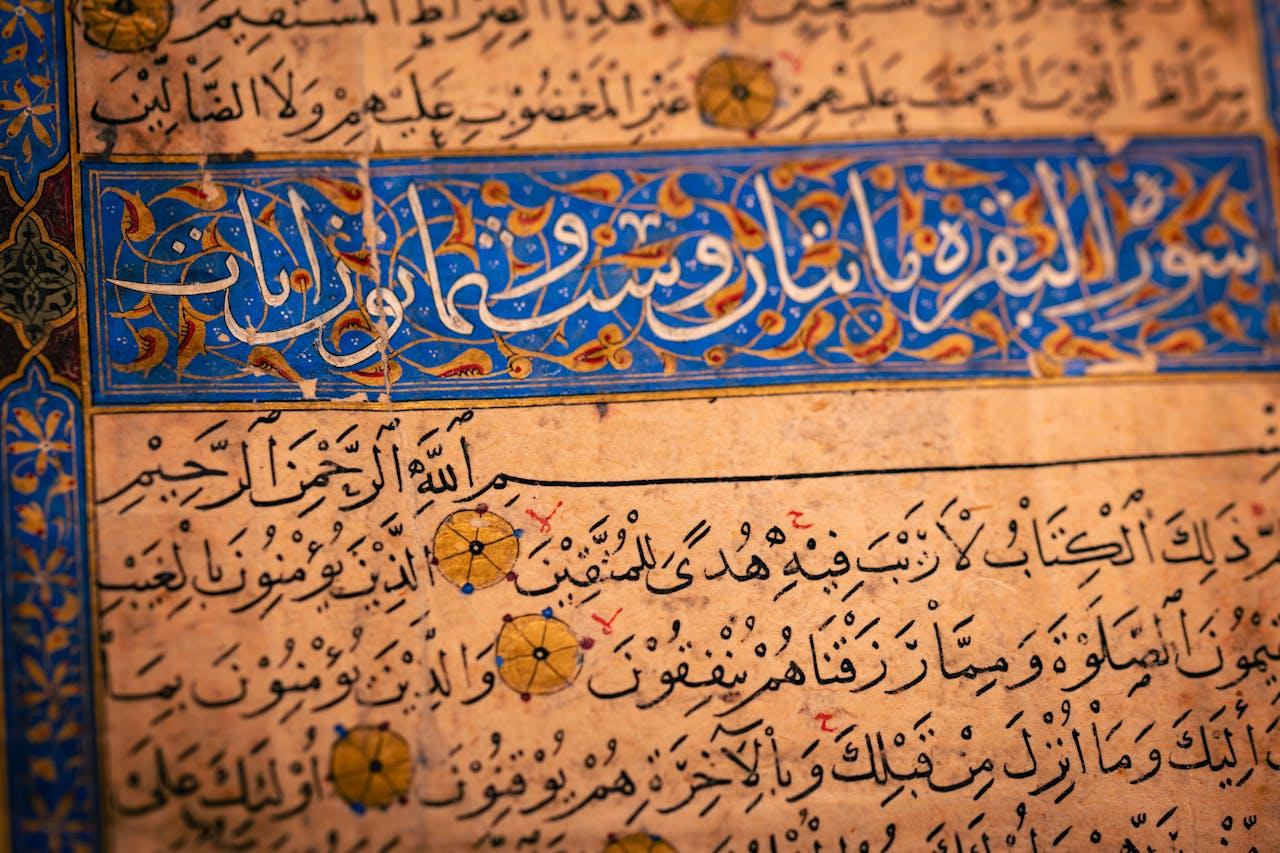 نستعين اهْدِنَا الصِّرَاطَ الْمُسْتَقِيمَ
صِرَاطَ الَّذِيْنَ اَنْعَمْتَ عَلَيْهِمْ غَيْرِ الْمَغْضُوْبِ عَلَيْهِمْ وَلَا الضَّالِّيْنَ
سورة البقرة مائتان وست وثمانون ايات
بِسْمِ ٱللَّهِ ٱلرَّحْمٰنِ ٱلرَّحِيْمِ
ذٰلِكَ ٱلْكِتَابُ لَا رَيْبَ فِيْهِ هُدًى لِلْمُتَّقِيْنَ الَّذِيْنَ يُؤْمِنُوْنَ بِالْغَيْبِ
ٱلصَّلٰوةَ وَمِمَّا رَزَقْنَاهُمْ يُنْفِقُوْنَ وَالَّذِيْنَ يُؤْمِنُوْنَ بِمَا
اِلَيْكَ وَمَا اُنْزِلَ مِنْ قَبْلِكَ وَبِالْاٰخِرَةِ هُمْ يُوْقِنُوْنَ اُوْلٰئِكَ عَلٰى